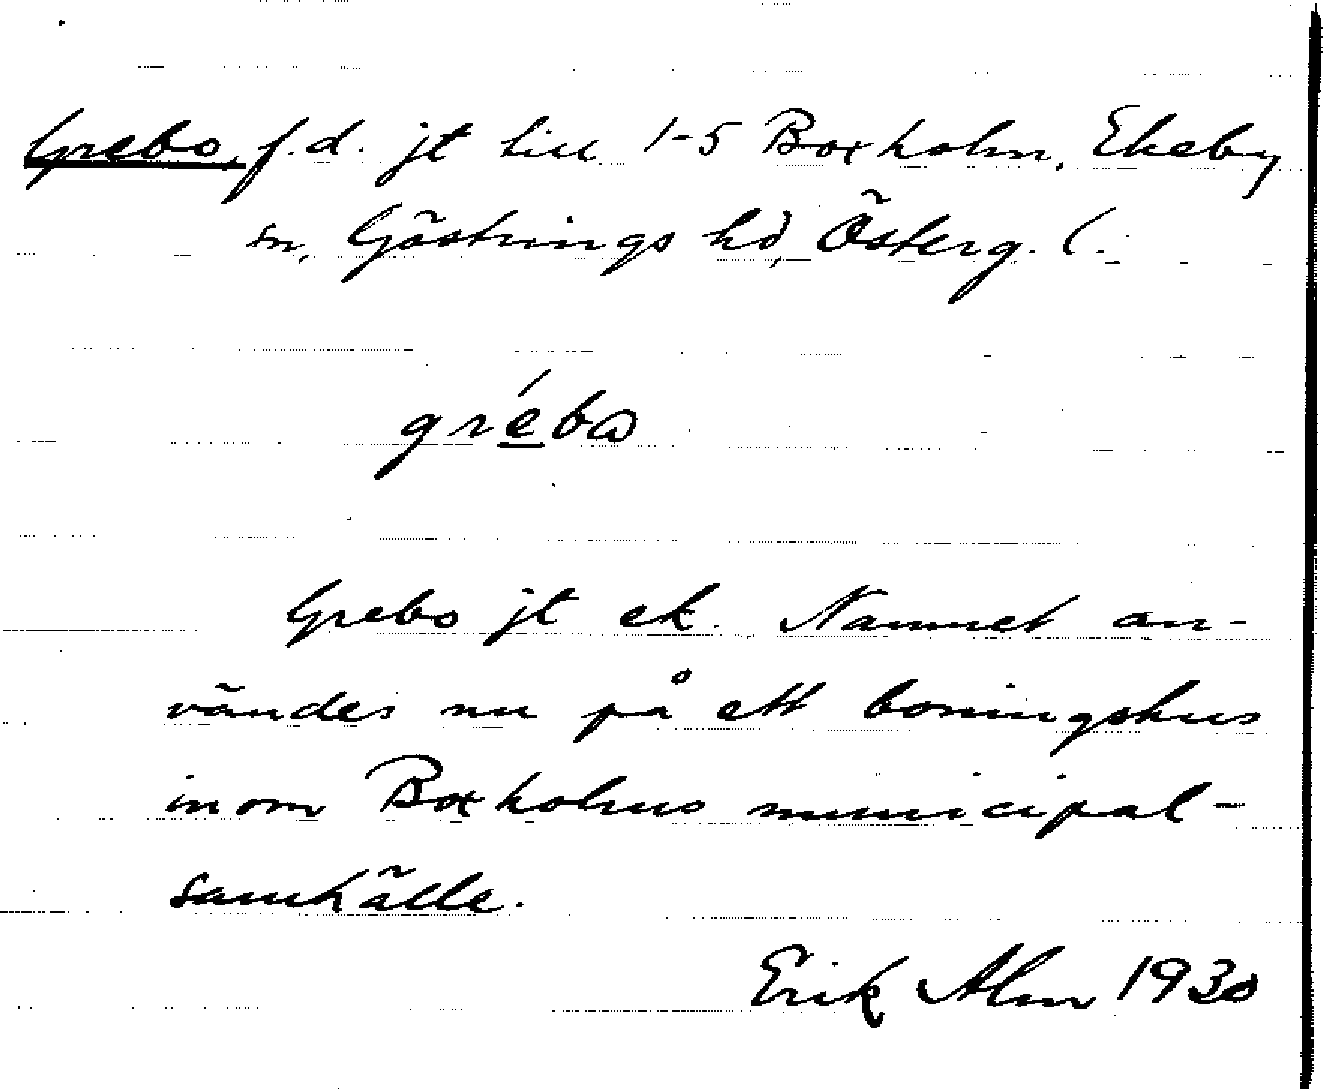 Grebo, f.d. jt till 1-5 Boxholm, Ekeby
sn, Göstrings hd, Österg. l.
grébω
Grebo jt ek. Namnet an-
vändes nu på ett boningshus
inom Boxholms municipal-
samhälle.
Erik Alm 1930